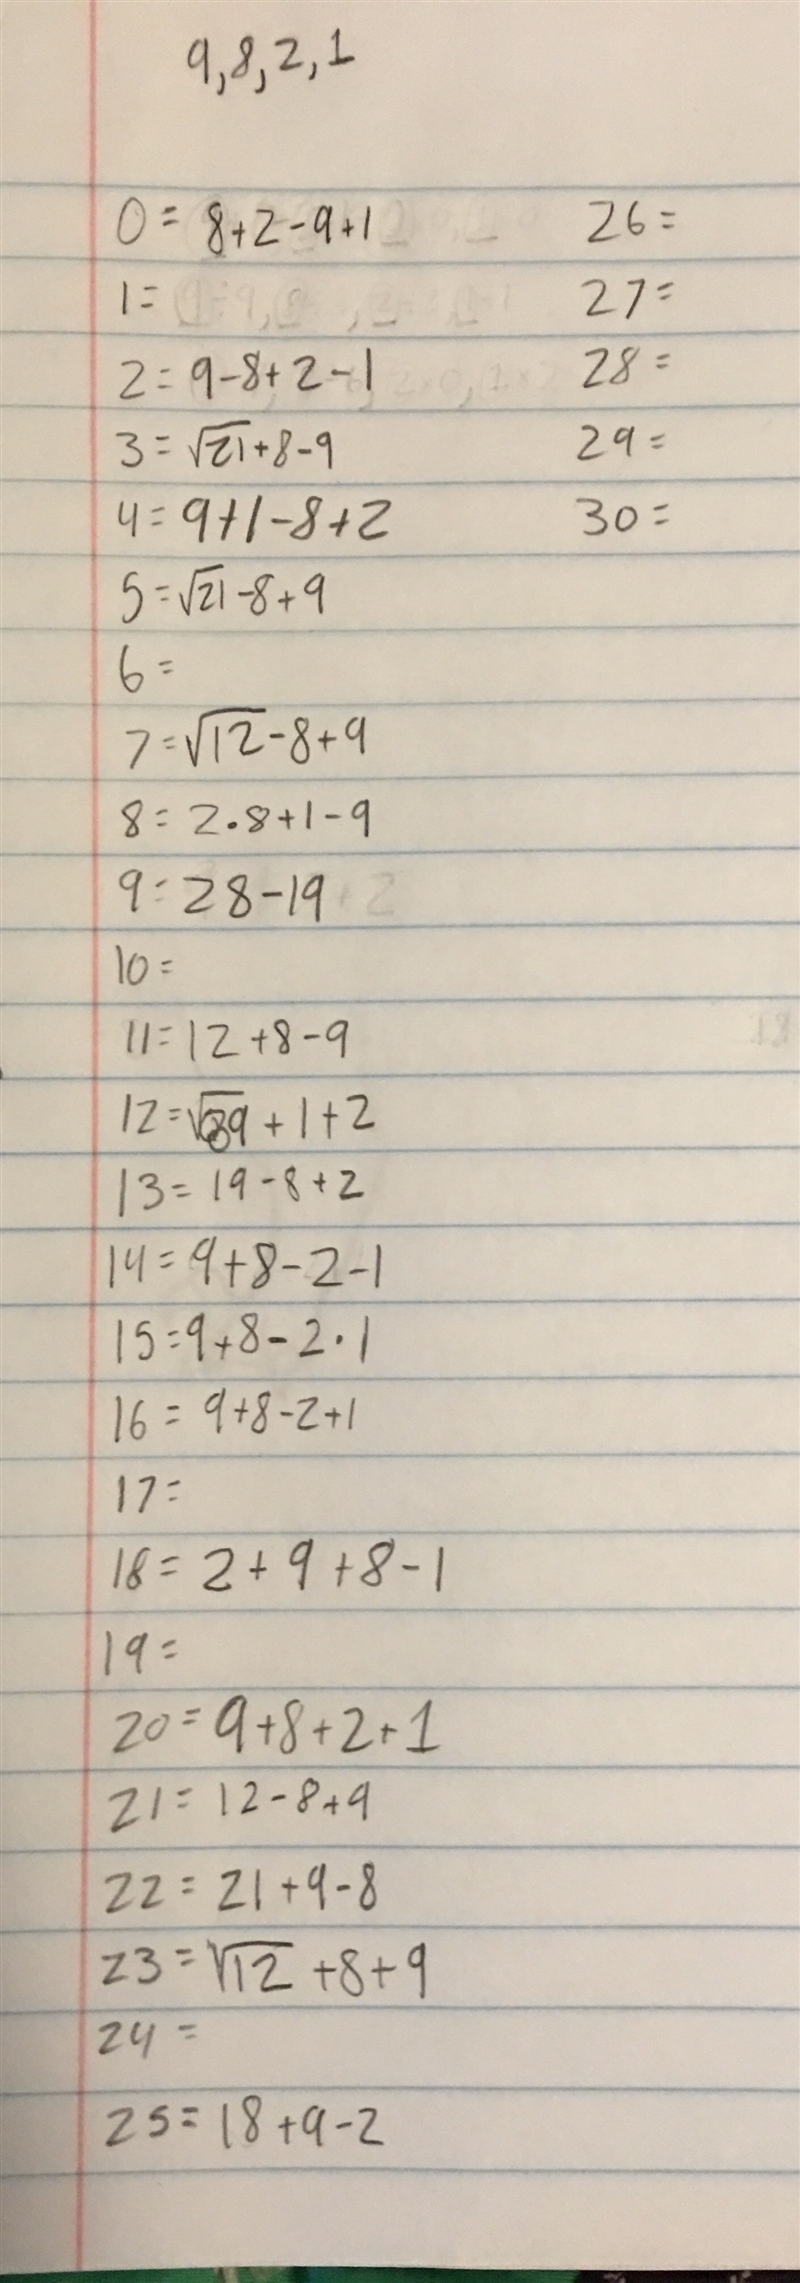 9,8,2,1
0= 8+2-9+1
1=
2= 9-8+2-1
3= √21+8-9
4= 9+1-8+2
5=√21-8+9
6=
7=√12-8+9
8= 2·8+1-9
9= 28-19
10=
11=12+8-9
12=√89+1+2
13= 19-8+2
14=9+8-2-1
15=9+8-2·1
16= 9+8-2+1
17=
18= 2+9+8-1
19=
20=9+8+2+1
21= 12-8+9
22= 21+9-8
23=√12+8+9
24=
25=18+9-2
26=
27=
28=
29=
30=